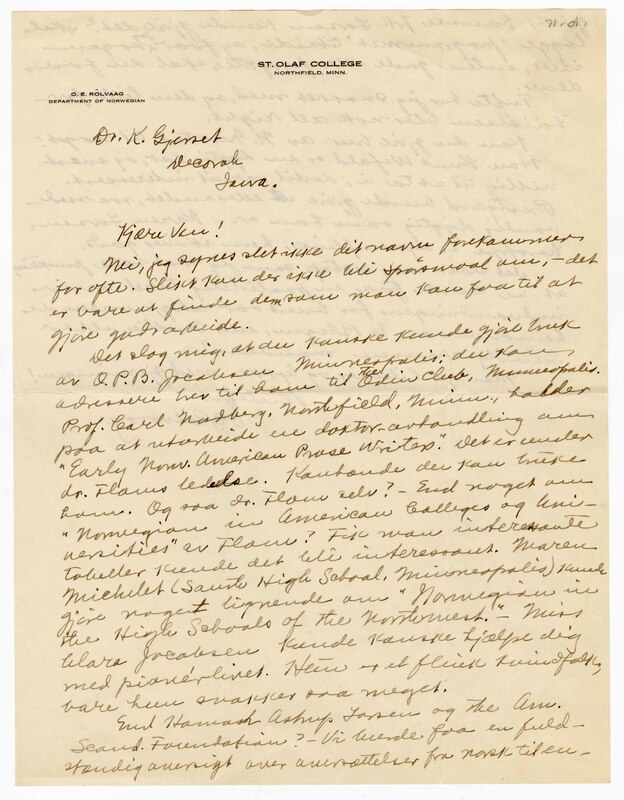 n.d.
ST. OLAF COLLEGE
NORTHFIELD, MINN.
O. E. RÖLVAAG
DEPARTMENT OF NORWEGIAN
Dr. K. Gjerset
Decorah
Iowa.
Kjære Ven!
Nei, jeg synes slet ikke dit navn forekommer
for ofte. Slikt kan der ikke bli spørsmaal om, – det
er bare at finde dem som man kan faa til at
gjöre godt arbeide.
Det slog mig, at du kanske kunde gjöre bruk
av O.P.B. Jacobsen Minneapolis; du kan
adressere brev til ham til the Odin Club, Minneapolis.
Prof. Carl Nadberg, Northfield, Minn., holder
paa at utarbeide en doktor-avhandling om
"Early Norw. American Prose Writers." Det er under
dr. Floms ledelse. Kanhænde du kan bruke
ham. Og saa dr. Flom selv? – End noget om
"Norwegian in American Colleges og Uni-
versities" av Flom? Fik man interessante
tabeller kunde det bli interessant. Maren
Michelet (South High School, Minneapolis) kunde
gjöre noget lignende om "Norwegian in
the High Schools of the Northwest." – Miss
Clara Jacobsen kunde kanske hjælpe dig
med pionérlivet. Hun er et flink kvindfolk,
bare hun snakker saa meget.
End Hanna Astrup Larsen og the Am.
Scand. Foundation? – Vi burde faa en fuld-
stændig oversigt over oversættelser fra norsk til en-